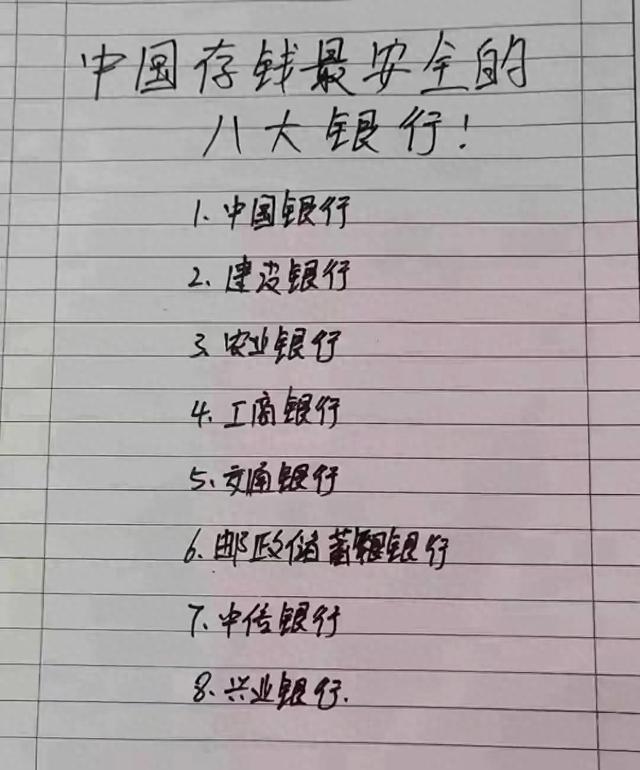 中国存钱最安全的
八大银行!
1、中国银行
2、建设银行
3、农业银行
4、工商银行
5、交通银行
6、邮政储蓄银行
7、中信银行
8、兴业银行.